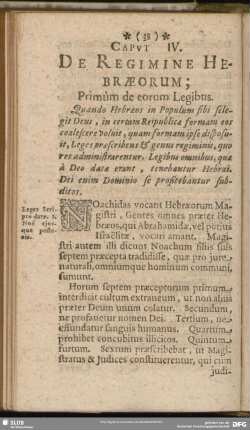 ✱ (38) ✱
CAPUT IV.
DE REGIMINE HE-
BRÆORUM;
Primùm de eorum Legibus.
Quando Hebræos in Populum sibi sele-
git Deus, in certam Reipublicæ formam eos
coalescere voluit, quam formam ipse disposu-
it, Leges præscribens & genus regiminis, quo
res administrarentur. Legibus omnibus, quæ
à Deo datæ erant, tenebantur Hebræi.
Dei enim Dominio se profitebantur sub-
ditos.
Leges Scri-
pto datæ.
NOachidas vocant Hebræorum Ma-
gistri, Gentes omnes præter He-
bræos, qui Abrahamidæ, vel potius
Israëlitæ, vocari amant. Magi-
stri autem illi dicunt Noachum filiis suis
septem præcepta tradidisse, quæ pro jure
naturali, omniumque hominum communi
sumunt.
Horum septem præceptorum primum
interdicit cultum extraneum, ut non alius
præter Deum unum colatur. Secundum,
ne profanetur nomen Dei. Tertium, ne
effundatur sanguis humanus. Quartum
prohibet concubitus illicitos. Quintum
furtum. Sextum præscribebat, ut Magi-
stratus & Judices constituerentur, qui cum
judi-
SLUB
DFG